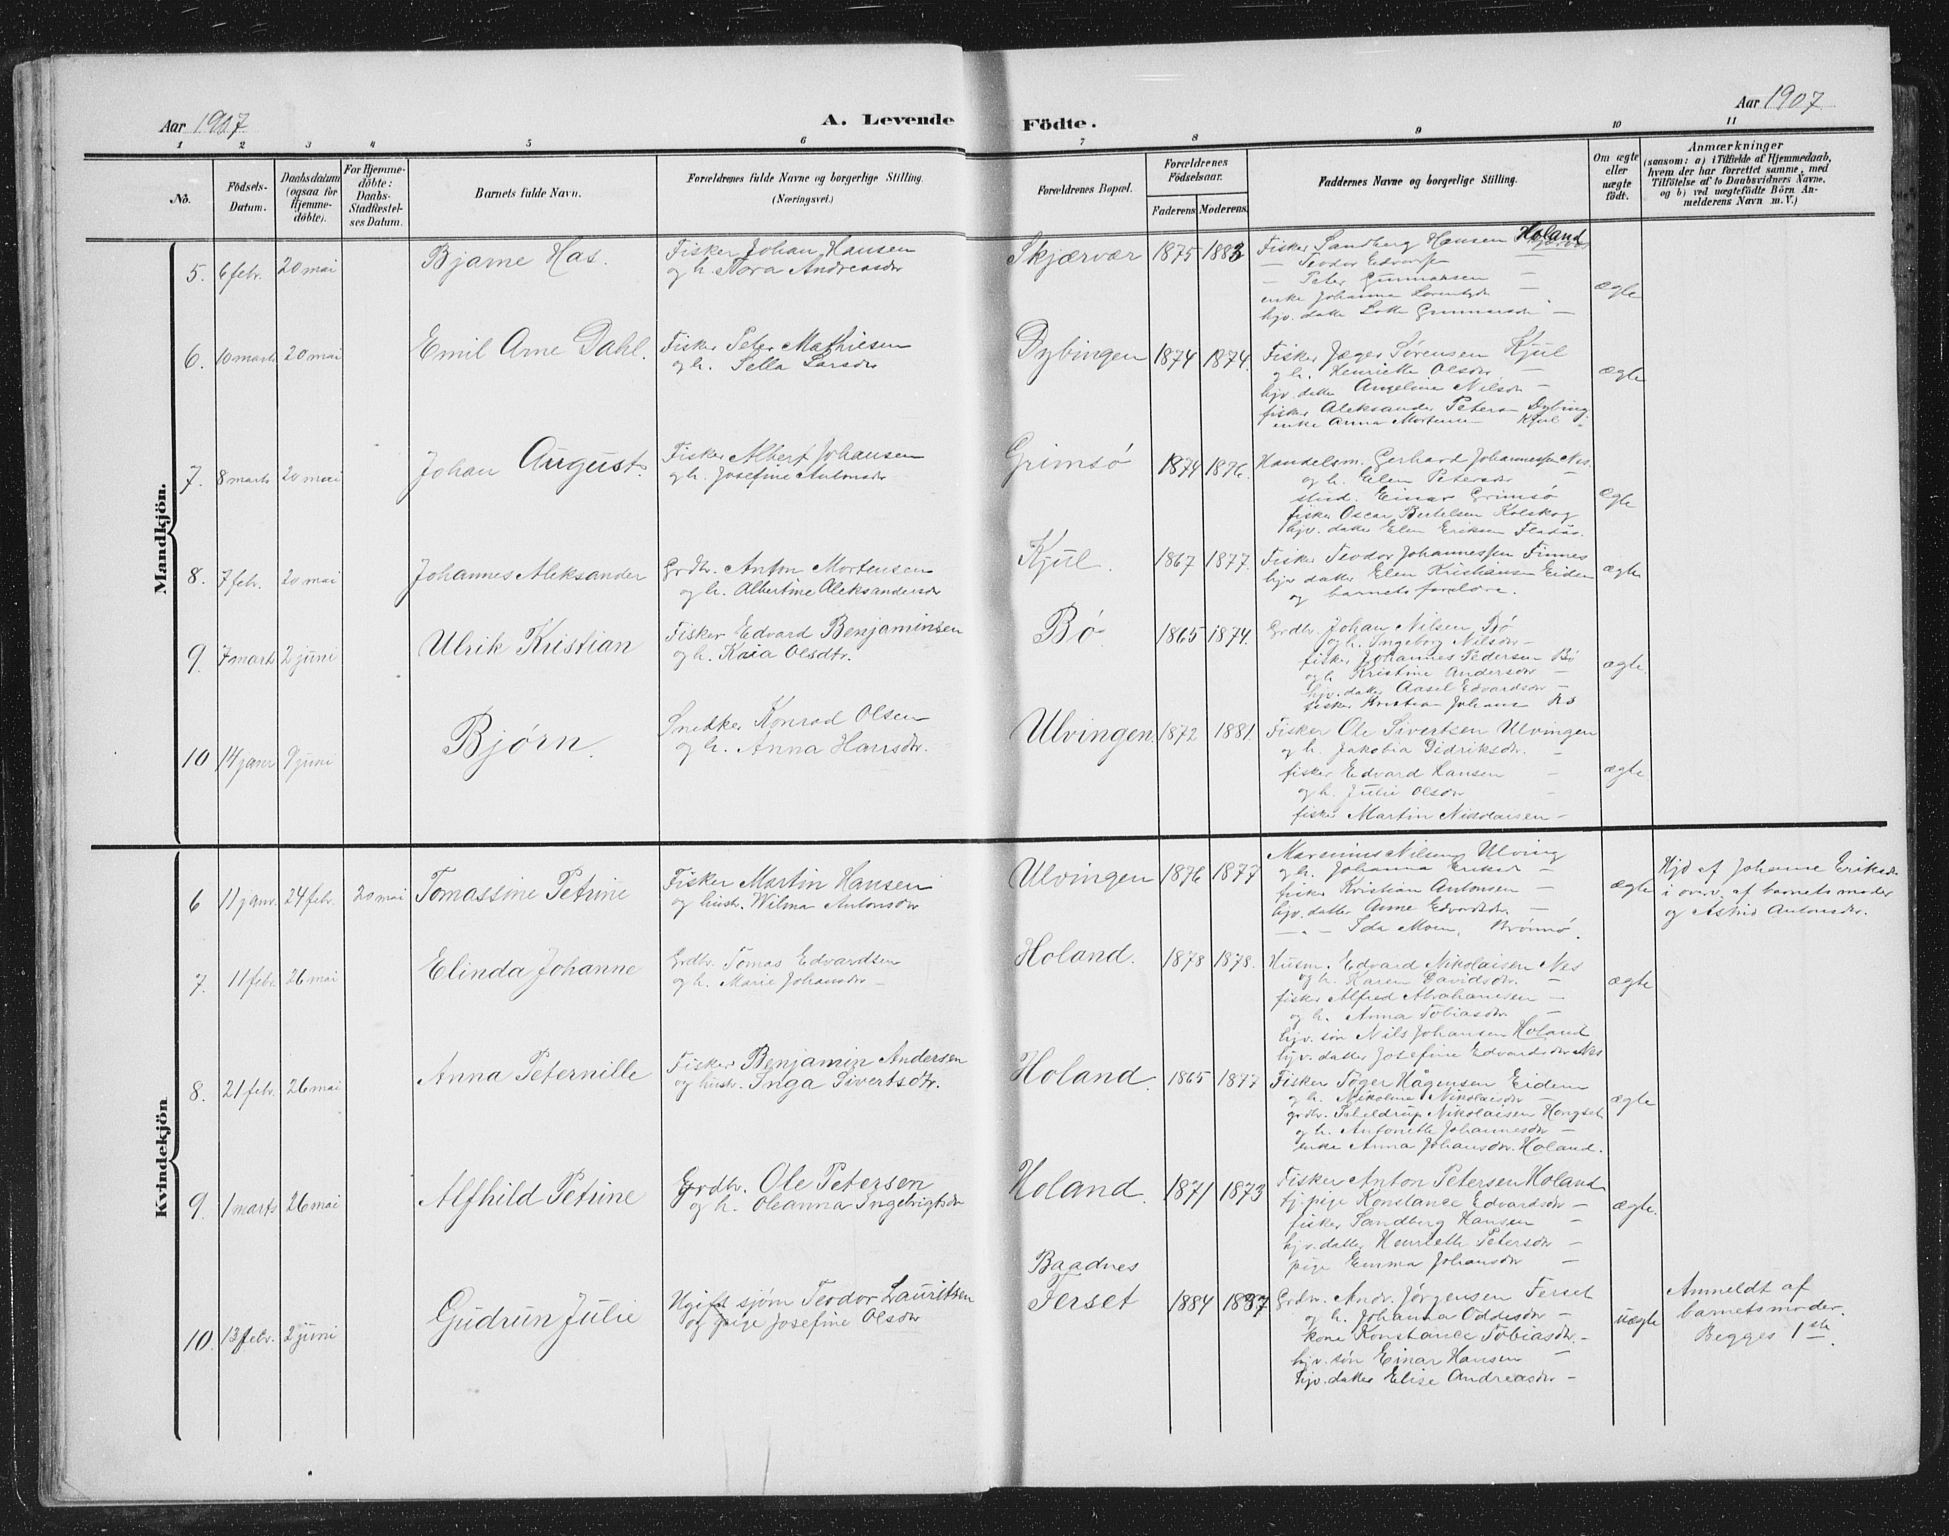 Aar 1907.
A. Levende Födte.
Aar 1907
1 2 3 4 5 6 7 8 9 10 11
No.
Födsels-Datum.
Daabsdatum (ogsaa for Hjemme-döbte).
For Hjemme-döbte: Daabs-Stadfæstel-ses Datum.
Barnets fulde Navn.
Forældrenes fulde Navne og borgerlige Stilling.
(Næringsvei.)
Forældrenes Bopæl.
Forældrenes Födselsaar.
Faderens. Moderens.
Faddernes Navne og borgerlige Stilling.
Om ægte eller uægte födt.
Anmærkninger
(saasom: a) i Tilfælde af Hjemmedaab, hvem der har forrettet samme, med Tilföielse af to Daabsvidners Navne, og b) ved uægtefödte Börn Anmelderens Navn m. V.)
Mandkjön.
5. 6 febr. 20 mai Bjarne Has.
Fisker Johan Hansen
og h. Nora Andreasdtr
Skjærvær 1875 1883
Fisker Sandberg Hansen Holand
— Teodor
— Peter Gunnarsen —
enke Johanna
hjv. datter Lotte
ægte
6. 10 marts 20 mai Emil Arne Dahl.
Fisker Peter Mathiesen
og h. Sella Larsdtr
Dybingen 1874 1874.
Fisker Jæger Sørensen Kjul
og h. Henriette Olsdtr —
hjv. datter Angeline Nilsdtr —
fisker Aleksander Peters Dybing
enke Anna Kjul
ægte
7. 8 marts 20 mai Johan August.
Fisker Albert Johansen
og h. Josefine Antonsdtr
Grimsø 1874 1876.
Handelsm. Gerhard Johannessen Nes.
og h. Elen Petersdtr —
stud. Einar Grimsø
fisker Oscar Bertelsen Kolskog
hjv. datter Elen Eriksen
ægte
8. 7 febr. 20 mai Johannes Aleksander
Grdbr. Anton Mortensen
og h. Albertine Aleksandersdtr
Kjul. 1867 1877.
Fisker Teodor Johannessen Finnes
hjv datter Elen Kristiansen Eidem
og barnets forældre.
ægte
9. 7 marts 2 juni Ulrik Kristian
Fisker Edvard Benjaminsen
og h. Kaia Olsdtr.
Bø 1865 1874.
Grdbr. Johan Nilsen, Bø
og h. Ingeborg Nilsdtr —
fisker Johannes Pedersen Bø
og h. Kristine Andersdtr —
hjv. datter Aasel Edvardsdtr —
fisker Kristian Johans Bø
ægte
10 14 janr 9 juni Bjørn.
Snedker Konrad Olsen
og h. Anna Hansdtr.
Ulvingen. 1872 1881.
Fisker Ole Sivertsen Ulvingen
og h. Jakobia Didriksdtr. —
fisker Edvard Hansen —
og h. Julie Olsdtr —
fisker Martin Nikolaisen —
ægte
Kvindekjön
6 11 janr. 24 febr. 20 mai Tomassine Petrine
Fisker Martin Hansen
og hustr. Wilma Antonsdtr
Ulvingen 1876 1877
Marsinius Nilsen, Ulving
og h. Johanna Eriksdtr —
fisker Kristian Antonsen —
hjv. datter Anne Edvardsdtr —
— „ — Ida Moen, Brønnø.
ægte
Hjd af Johanne Eriksdtr
i overv. af barnets moder
og Astrid Antonsdtr.
7. 11 febr. 26 mai Elinda Johanne
Grdbr. Tomas Edvardsen
og h. Marie Johansdtr —
Holand. 1878 1878.
Husm. Edvard Nikolaisen Nes
og h. Karen Davidsdtr. —
fisker Alfred Abrahamsen —
og h. Anna Tobiasdtr —
hjv. søn Nils Johansen Holand
hjv. datter Josefine Edvardsdtr Nes
ægte
8. 21 febr. 26 mai Anna Peternille
Fisker Benjamin Andersen
og hustr. Inga Sivertsdtr.
Holand. 1865 1877
Fisker Toger Hågensen Eidem
og h. Nikoline Nikolaisdtr —
grdbr. Peteldrup Nikolaisen Hongset
og h. Antonette Johannesdtr —
enke Anna Johansdtr. Holand.
ægte
9. 1 marts 26 mai Alfhild Petrine
Grdbr. Ole Petersen
og h. Oleanna Ingebrigtsdtr
Holand. 1871 1873
Fisker Anton Petersen Holand
tj. pige Konstance Edvardsdtr —
fisker Sandberg Hansen —
hjv. datter Henriette Petersdtr —
pige Emma Johansdtr —
ægte.
10. 13 febr. 2 juni Gudrun Julie
Ugift sjøm Teodor Lauritsen
og pige Josefine Olsdtr
Baadnes
Ferset 1884 1887
Grdbr. Andr. Jørgensen Ferset
og h. Johanna Oddesdtr —
kone Konstance Tobiasdtr. —
hjv. søn Einar Hansen —
hjv. datter Elise Andreasdtr —
uægte
Anmeldt af
barnets moder.
Begges 1ste.